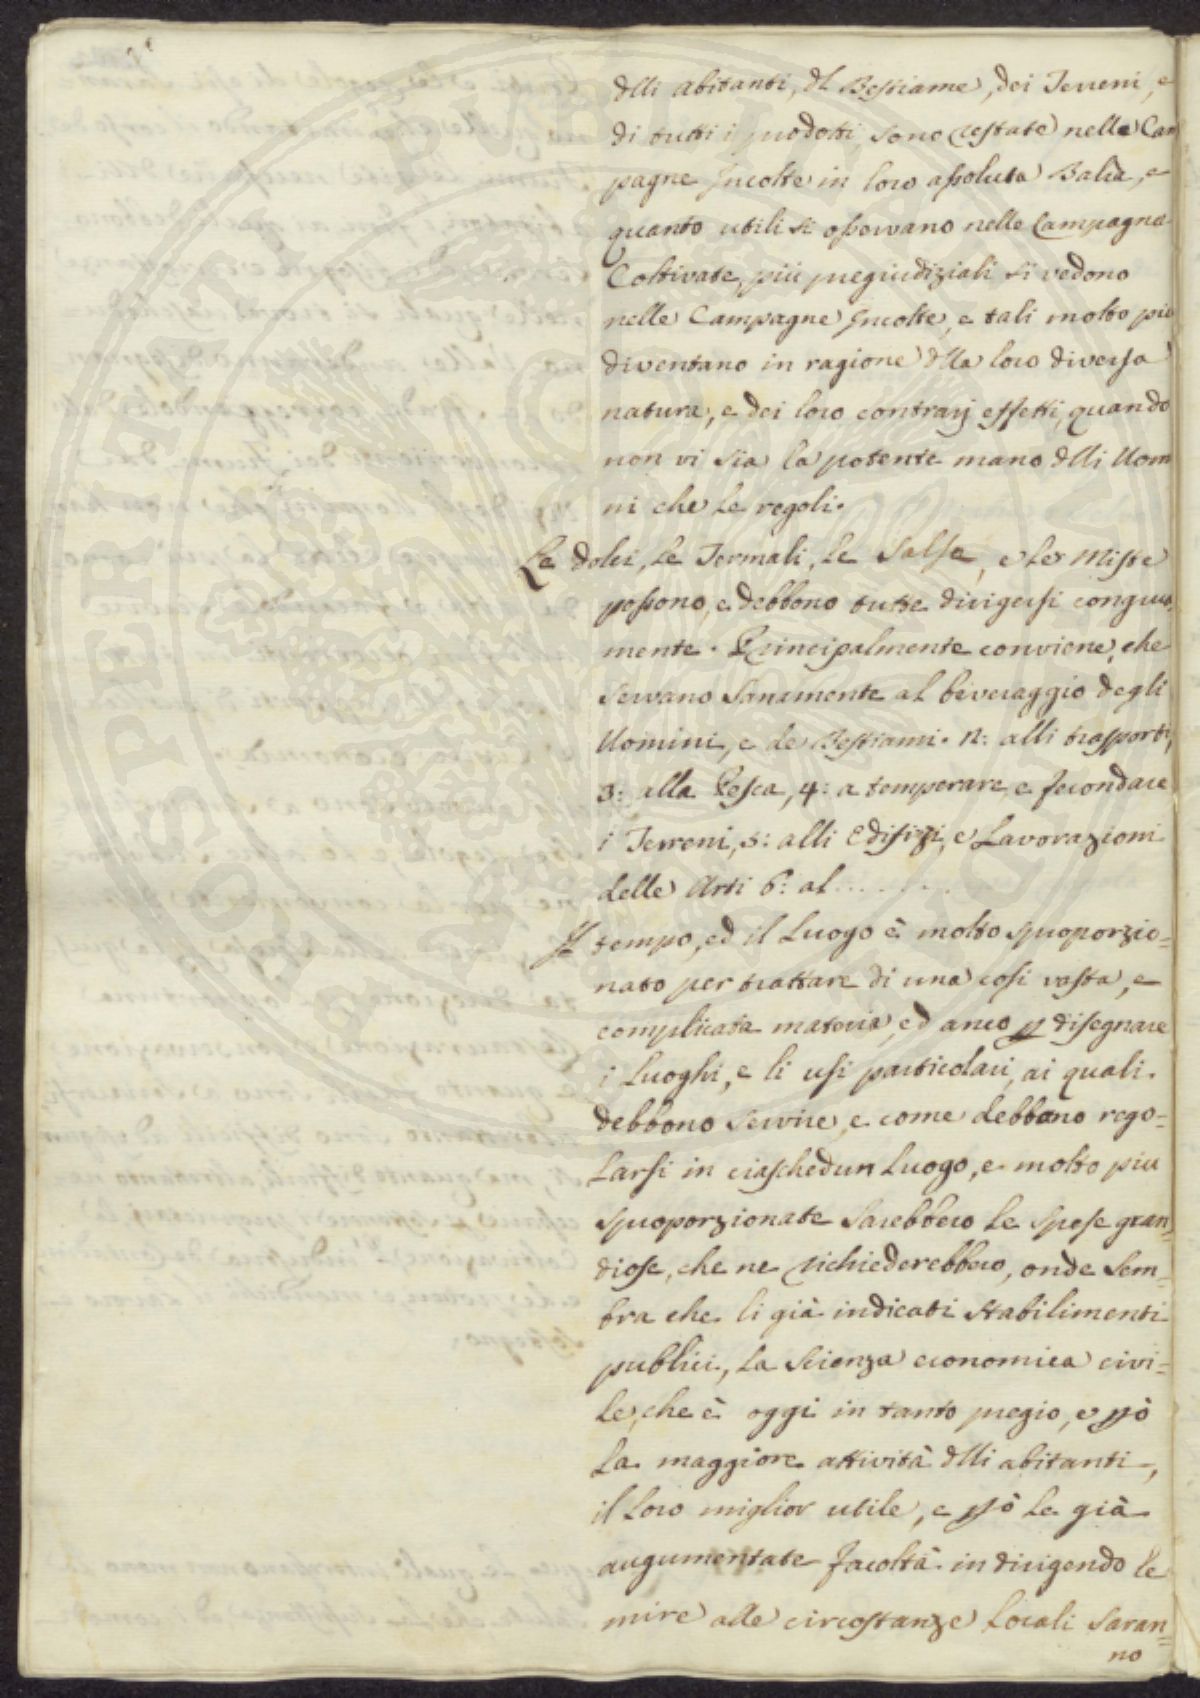 dlli abitanti, dl Bestiame, dei Terreni, e
di tutti i prodotti sono restate nelle Cam
pagne Incolte in loro assoluta Balìa, e
quanto utili si osservano nelle Campagne
Coltivate, più pregiudiziali si vedono
nelle Campagne Incolte, e tali molto più
diventano in ragione dlla loro diversa
natura, e dei loro contrarj effetti, quando
non vi sia la potente mano dlli Uom
ni che le regoli.
Le dolci, le Termali, le Salse, e le Miste
possono, e debbono tutte dirigersi congrua
mente. Principalmente conviene, che
servano sanamente al beveraggio degli
Uomini, e de Bestiami. 2: alli trasporti,
3: alla Pesca, 4: a temperare e fecondare
i Terreni, 5: alli Edifizj, e Lavorazioni
delle Arti 6: al . . . . . . .
Il tempo, ed il Luogo è molto sproporzio=
nato per trattare di una così vasta, e
complicata materia, ed anco p disegnare
i Luoghi, e li usi particolari, ai quali
debbono servire, e come debbono rego=
larsi in ciaschedun Luogo, e molto più
sproporzionate sarebbero le spese gran=
diose, che ne richiederebbero, onde sem=
bra che li già indicati stabilimenti
publici, la scienza economica civi=
le, che è oggi in tanto pregio, e pò
la maggiore attività dlli abitanti,
il loro miglior utile, e pò le già
augumentate facoltà in dirigendo le
mire alle circostanze locali saran=
no
PERITATI PUBLI